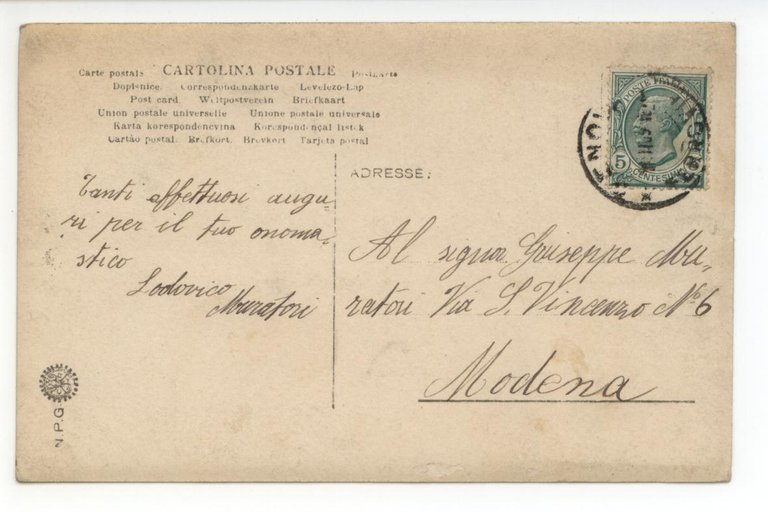 Carte postale CARTOLINA POSTALE Postkarte
Dopisnice. Correspondenzkarte Levelezo-Lap
Post card. Weltpostverein Briefkaart
Union postale universelle Unione postale universale
Karta korespondencyina Korespondençal listek
Cartão postal. Brefkort. Brevkort Tarjeta postal
ADRESSE:
Tanti affettuosi augu-
ri per il tuo onoma-
stico
Lodovico
Muratori
Al signor Giuseppe Mu-
ratori Via S. Vincenzo No 6
Modena
POSTE ITALIANE
5
CENTESIMI
N.P.G.